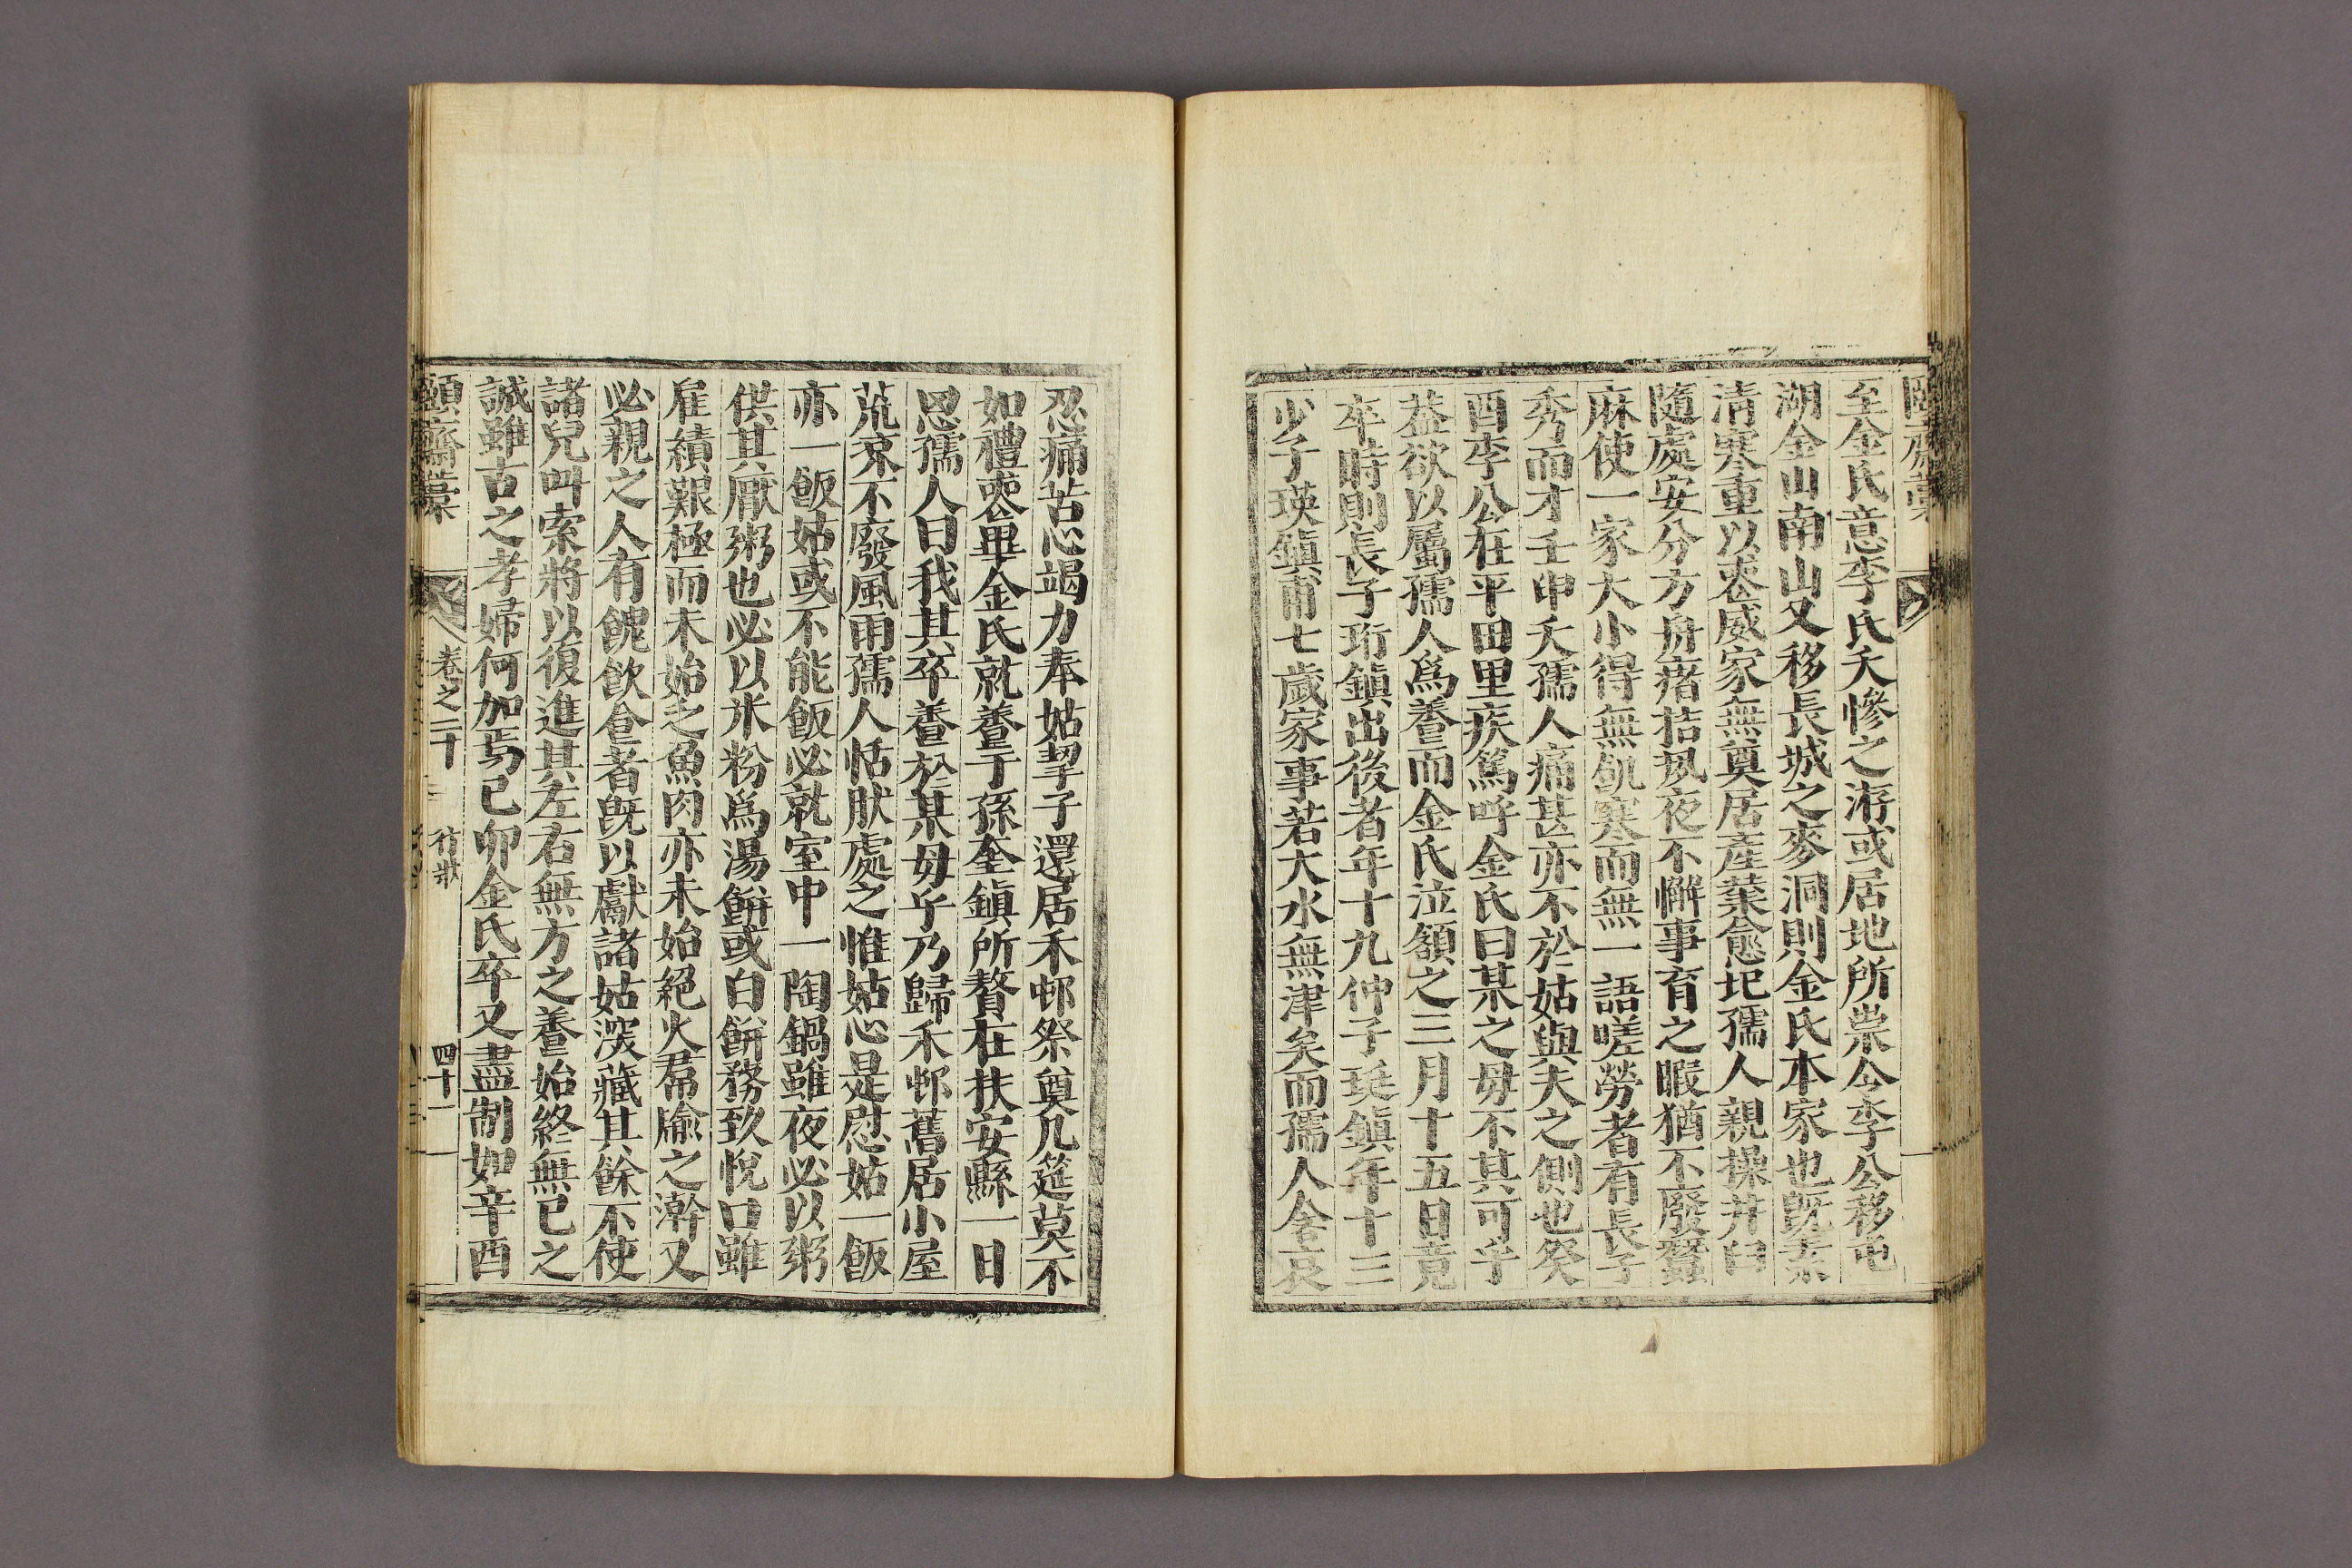 頤齋藁
至金氏意李氏夭慘之洊或居地所祟令李公移屯
湖金山南山又移長城之麥洞則金氏本家也旣素
淸寒重以喪威家無奠居產業愈圮孺人親操井臼
隨處安分方舟瘏拮夙夜不懈事育之暇猶不廢蠶
麻使一家大小得無飢寒而無一語嗟勞者有長子
秀而才壬申夭孺人痛甚亦不於姑與夫之側也癸
酉李公在平田里疾篤呼金氏曰某之母不其可乎
益欲以屬孺人爲養而金氏泣額之三月十五日竟
卒時則長子珩鎭出後者年十九仲子珽鎭年十三
少子瑛鎭甫七歲家事若大水無津矣而孺人含哀
忍痛苦心竭力奉姑挈子還居禾邨祭奠几筵莫不
如禮喪畢金氏就養于孫奎鎭所贅在扶安縣一日
思孺人曰我其卒養於某母乎乃歸禾邨舊居小屋
荒凉不廢風雨孺人恬肰處之惟姑心是慰姑一飯
亦一飯姑或不能飯必就室中一陶鍋雖夜必以粥
供其厰粥也必以米粉爲湯餠或白餠務致悅口雖
雇績艱極而未始乏魚肉亦未始絕火帬牏之澣又
必親之人有餽飮食者旣以獻諸姑深藏其餘不使
諸兒叫索將以復進其左右無方之養始終無已之
誠雖古之孝婦何加焉己卯金氏卒又盡制如辛酉
頤齋藁 卷之二十 行狀 四十一